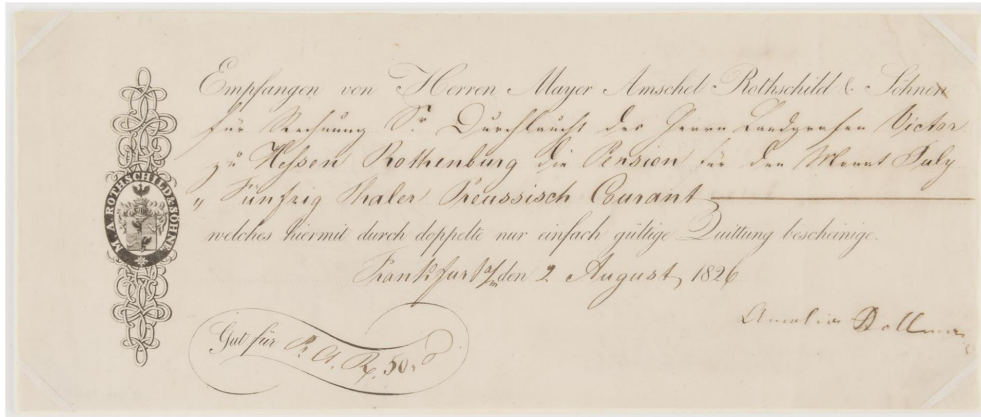 M. A. ROTHSCHILD & SÖHNE
Empfangen von Herren Mayer Amschel Rothschild & Söhnen
für Rechnung Sr. Durchlaucht des Herrn Landgrafen Victor
zu Hessen Rothenburg die Pension für den Monat July
" Fünfzig Thaler Preussisch Courant
welches hiermit durch doppelte nur einfach gültige Quittung bescheinige.
Frankfurt a/m den 2. August 1826
Amalia
Gut für P. C. 50.